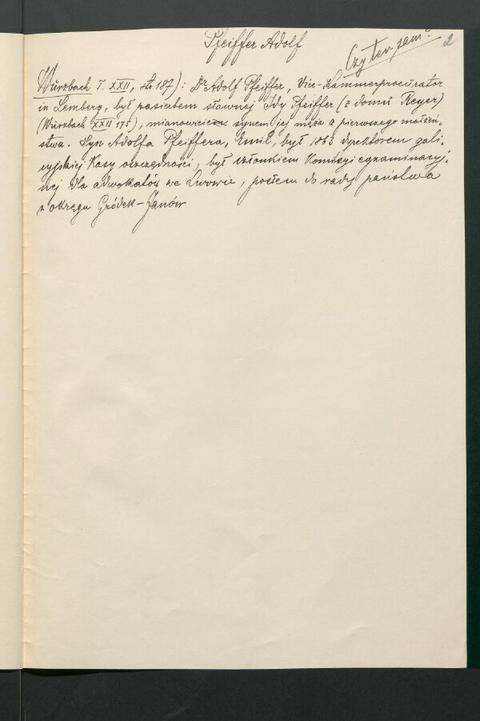 Pfeiffer Adolf
Czy ten sam? 2
Wurzbach T. XXII, str. 187): Dr Adolf Pfeiffer, Vice-Kammerprocurator
in Lemberg, był pasierbem sławnej Idy Pfeiffer (z domu Reyer)
(Wurzbach XXII 175), mianowicie synem jej męża z pierwszego małżeń-
stwa. Syn Adolfa Pfeiffera, Emil, był 1863 dyrektorem gali-
cyjskiej Kasy oszczędności, był członkiem Komisyi egzaminacyj-
nej dla adwokatów we Lwowie, posłem do rady państwa
z okręgu Gródek-Janów